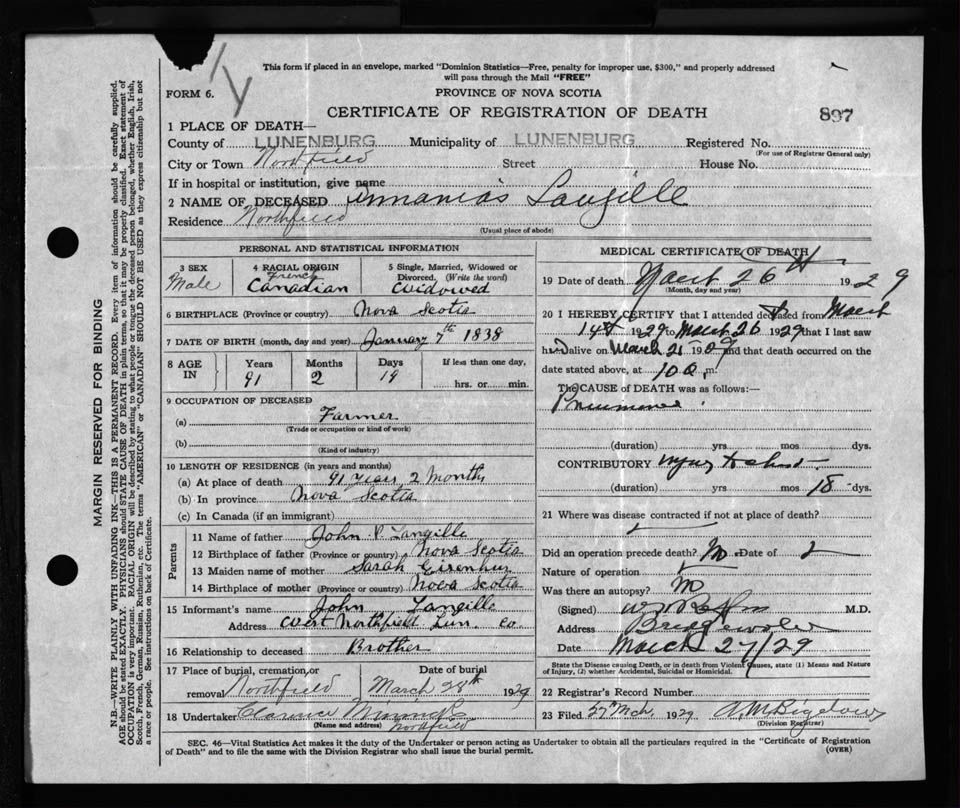 This form if placed in an envelope, marked "Dominion Statistics—Free, penalty for improper use, $300," and properly addressed
will pass through the Mail "FREE"
FORM 6.
PROVINCE OF NOVA SCOTIA
CERTIFICATE OF REGISTRATION OF DEATH
897
1 PLACE OF DEATH—
County of LUNENBURG Municipality of LUNENBURG Registered No.
(For use of Registrar General only)
City or Town Northfield Street House No.
If in hospital or institution, give name
2 NAME OF DECEASED Annanias Langille
Residence Northfield
(Usual place of abode)
PERSONAL AND STATISTICAL INFORMATION
3 SEX
Male
4 RACIAL ORIGIN
French
Canadian
5 Single, Married, Widowed or
Divorced, (Write the word)
Widowed
6 BIRTHPLACE (Province or country) Nova Scotia
7 DATE OF BIRTH (month, day and year) January 7th 1838
8 AGE
IN
Years
91
Months
2
Days
19
If less than one day,
hrs. or min.
9 OCCUPATION OF DECEASED
(a) Farmer
(Trade or occupation or kind of work)
(b)
(Kind of industry)
10 LENGTH OF RESIDENCE (in years and months)
(a) At place of death 91 years, 2 months
(b) In province Nova Scotia
(c) In Canada (if an immigrant)
Parents
11 Name of father John P Langille
12 Birthplace of father (Province or country) Nova Scotia
13 Maiden name of mother Sarah Eisenhur
14 Birthplace of mother (Province or country) Nova Scotia
15 Informant's name John Langille
Address West Northfield Lun. Co.
16 Relationship to deceased Brother
17 Place of burial, cremation, or Date of burial
removal Northfield March 28th 1929
18 Undertaker Clarence
(Name and address) Northfield
MEDICAL CERTIFICATE OF DEATH
19 Date of death March 26th 1929
(Month, day and year)
20 I HEREBY CERTIFY that I attended deceased from March
14th 1929 to March 26 1929 that I last saw
h alive on March 21 1929 and that death occurred on the
date stated above, at 10 a. m.
The CAUSE OF DEATH was as follows:—
Pneumonia
(duration) yrs mos dys.
CONTRIBUTORY
(duration) yrs mos 18 dys.
21 Where was disease contracted if not at place of death?
Did an operation precede death? No Date of
Nature of operation
Was there an autopsy? No
(Signed) M.D.
Address Bridgewater
Date March 27/29
State the Disease causing Death, or in death from Violent Causes, state (1) Means and Nature
of Injury, (2) whether Accidental, Suicidal or Homicidal.
22 Registrar's Record Number
23 Filed 27 Mch. 1929 A.M. Bigelow
(Division Registrar)
SEC. 46—Vital Statistics Act makes it the duty of the Undertaker or person acting as Undertaker to obtain all the particulars required in the "Certificate of Registration
of Death" and to file the same with the Division Registrar who shall issue the burial permit.
(OVER)
MARGIN RESERVED FOR BINDING
N.B.—WRITE PLAINLY WITH UNFADING INK—THIS IS A PERMANENT RECORD. Every item of information should be carefully supplied.
AGE should be stated EXACTLY. PHYSICIANS should STATE CAUSE OF DEATH in plain terms, so that it may be properly classified. Exact statement of
OCCUPATION is very important. RACIAL ORIGIN will be described by stating to what people or tongue the deceased person belonged, whether English, Irish,
Scotch, French, German, Russian, Ruthenian, etc. The terms "AMERICAN" or "CANADIAN" SHOULD NOT BE USED as they express citizenship but not
a race or people. See instructions on back of Certificate.